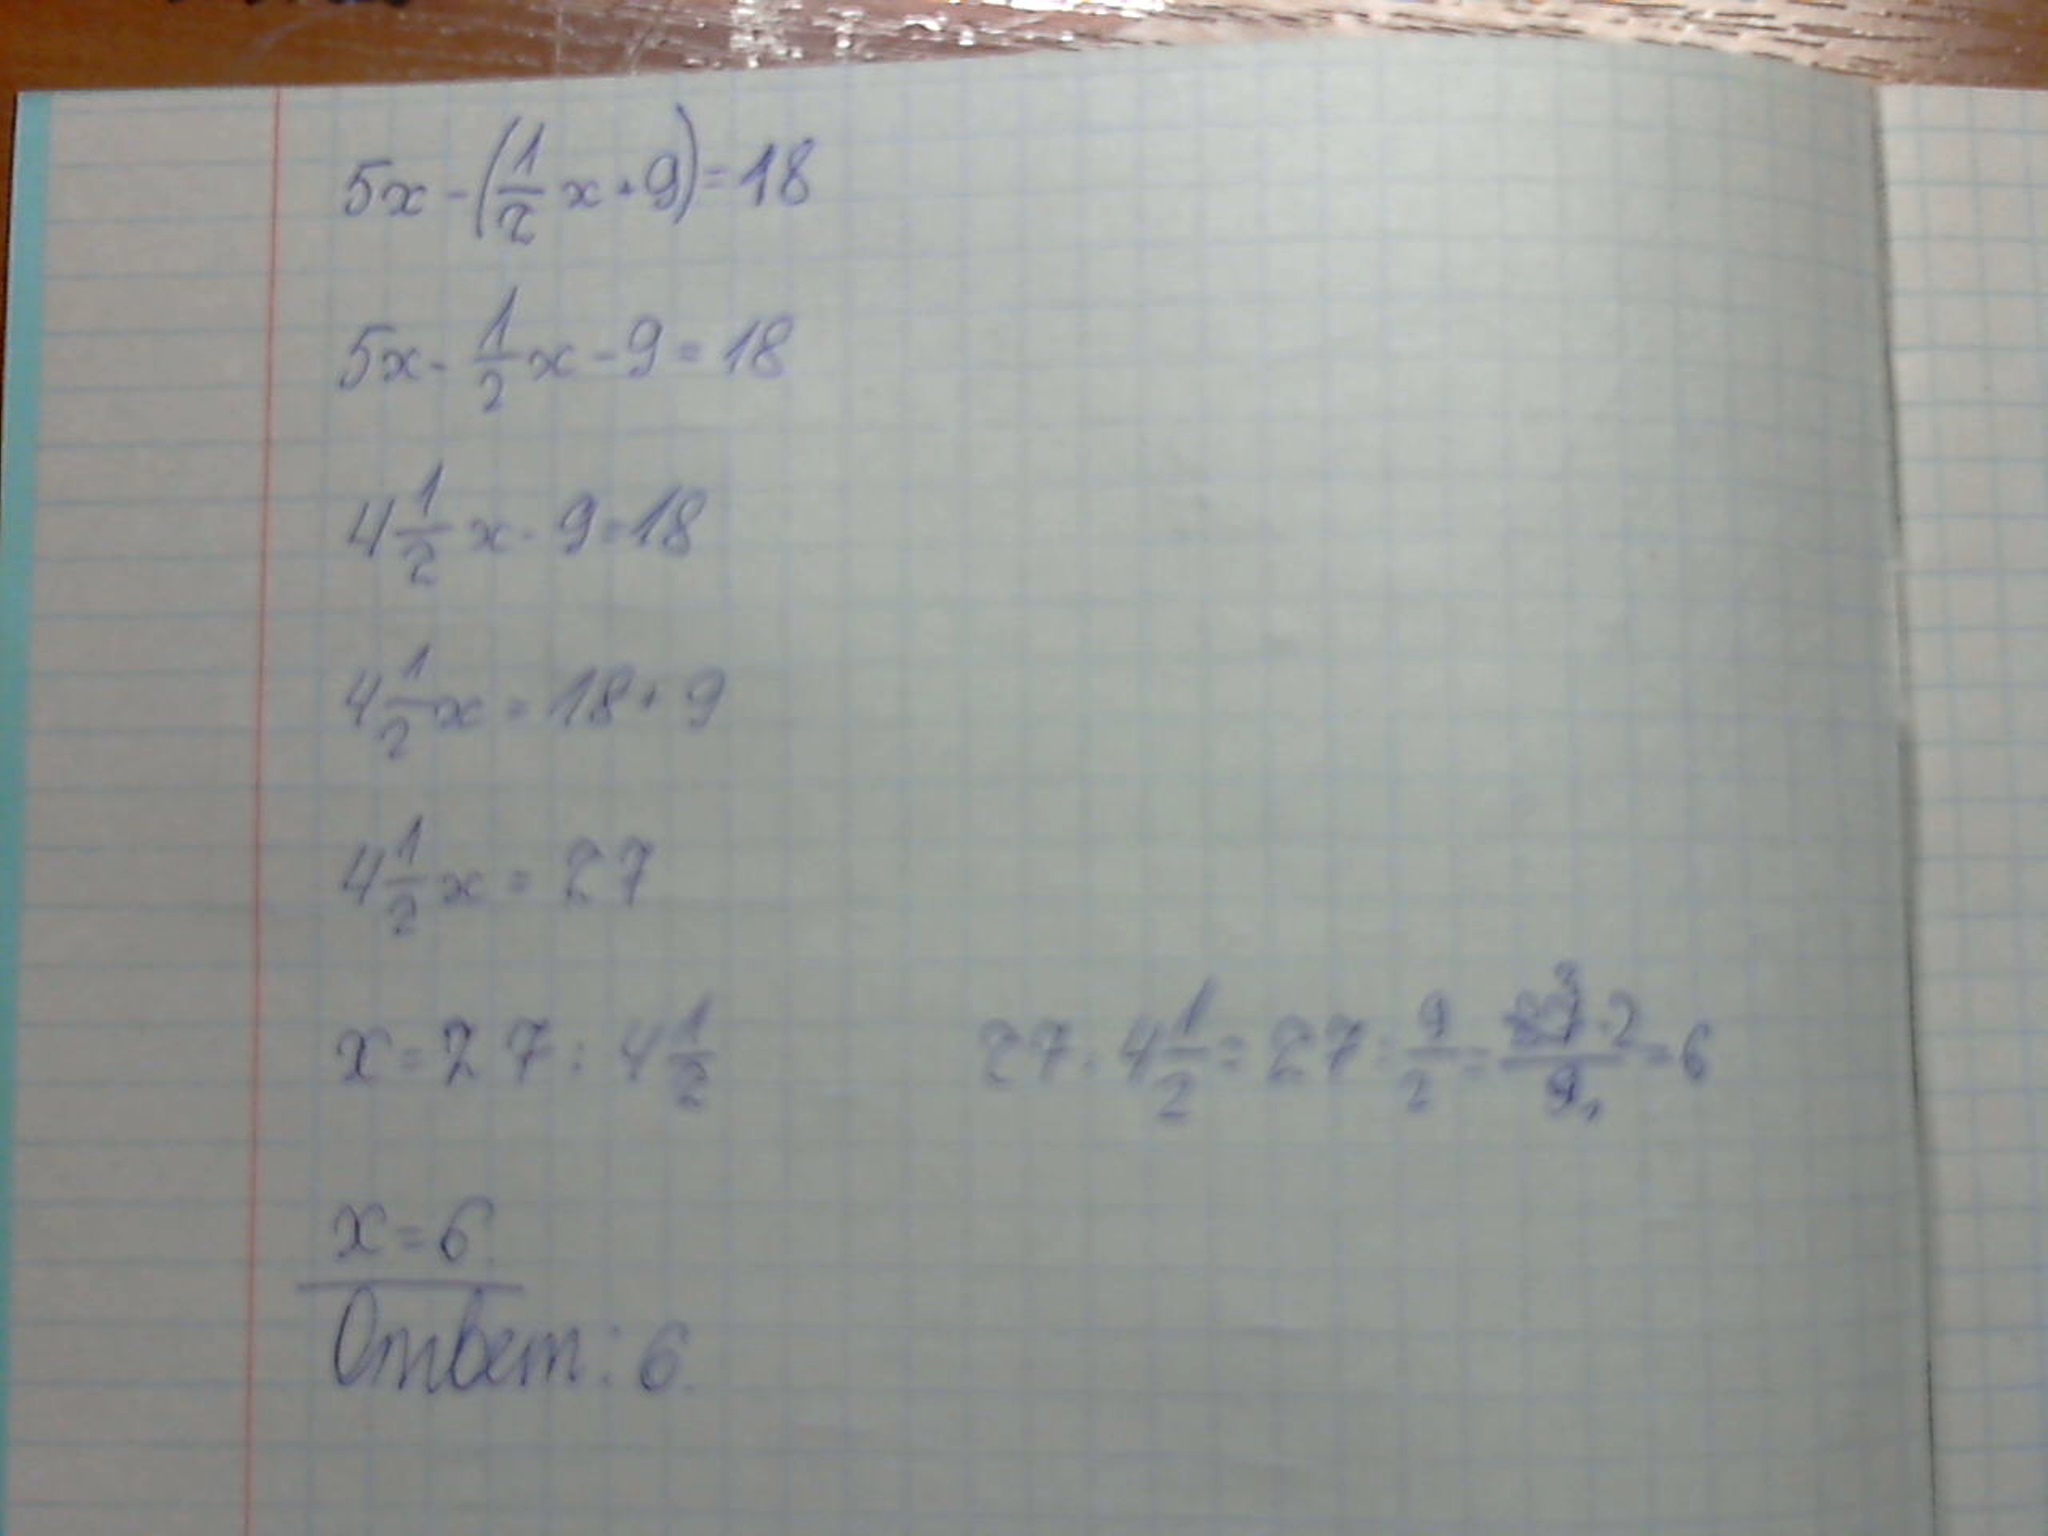 5x - (1/2 x + 9) = 18
5x - 1/2 x - 9 = 18
4 1/2 x - 9 = 18
4 1/2 x = 18 + 9
4 1/2 x = 27
x = 27 : 4 1/2
27 : 4 1/2 = 27 : 9/2 = 27 3 · 2 / 9 1 = 6
x = 6.
Ответ: 6.